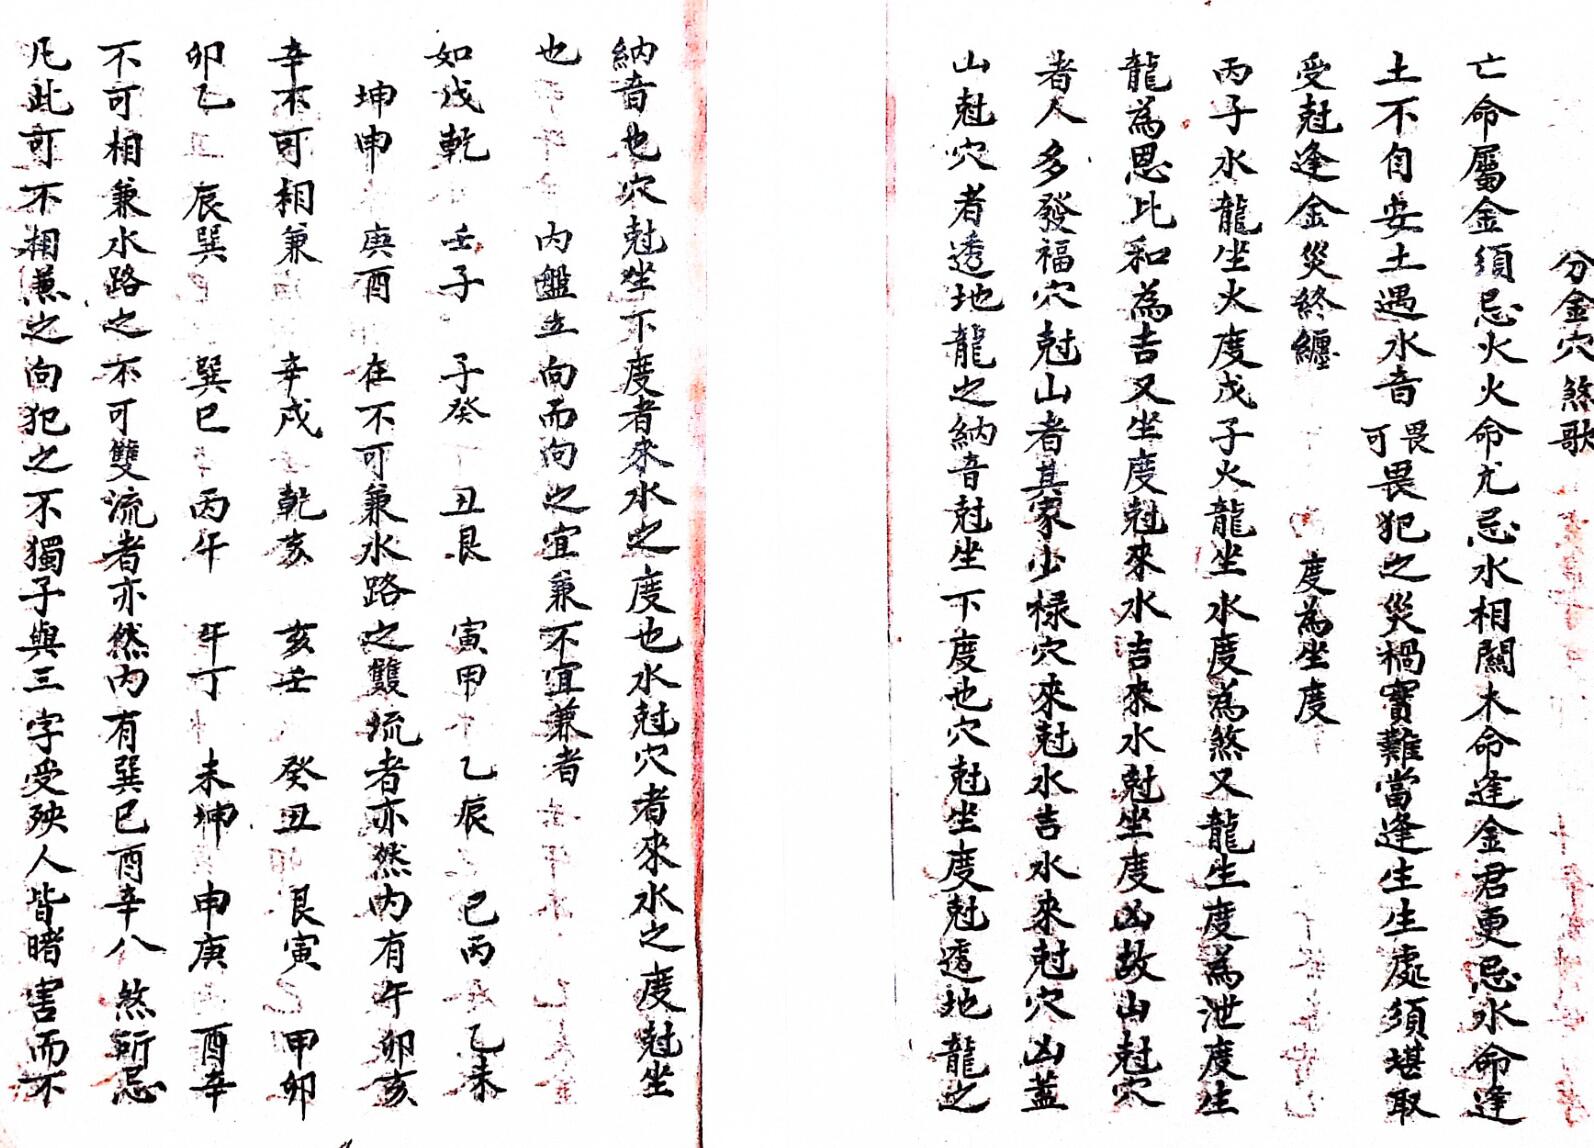 分金穴煞歌
亡命屬金須忌火火命尤忌水相關木命逢金君更忌水命逢
土不自安土遇水音可畏畏犯之災禍實難當逢生生處須堪取
受尅逢金災終纏 度為坐度
丙子水龍坐火度戊子火龍坐水度為煞又龍生度為泄度生
龍為恩比和為吉又坐度尅來水吉來水尅坐度凶故山尅穴
者人多發福穴尅山者其家少祿穴來尅水吉水來尅穴凶蓋
山尅穴者透地龍之納音尅坐下度也穴尅坐度尅透地龍之
納音也穴尅坐下度者來水之度也水尅穴者來水之度尅坐
也 內盤立向而向之宜兼不宜兼者
如戌乾 壬子 子癸 丑艮 寅甲 乙辰 巳丙 乙未
坤申 庚酉 在不可兼水路之雙流者亦然內有午卯亥
辛不可相兼 辛戌 乾亥 亥壬 癸丑 艮寅 甲卯
卯乙 辰巽 巽巳 丙午 午丁 未坤 申庚 酉辛
不可相兼水路之不可雙流者亦然內有巽巳酉辛八煞所忌
凡此可不相兼之向犯之不獨子與三字受殃人皆暗害而不